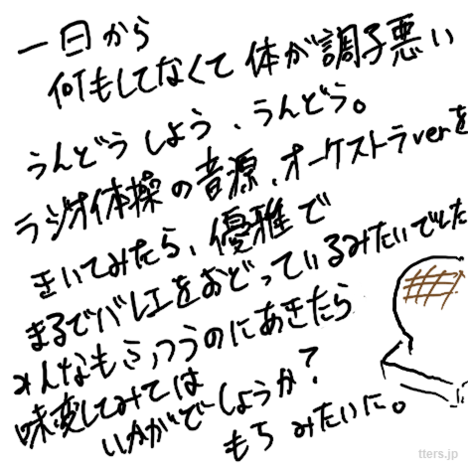 一日から
何もしてなくて体が調子悪い
うんどうしよう、うんどう。
ラジオ体操の音源、オーケストラverを
きいてみたら、優雅で
まるでバレエをおどっているみたいでした
みんなもふつうのにあきたら
味変してみては
いかがでしょうか?
もちみたいに。
tters.jp